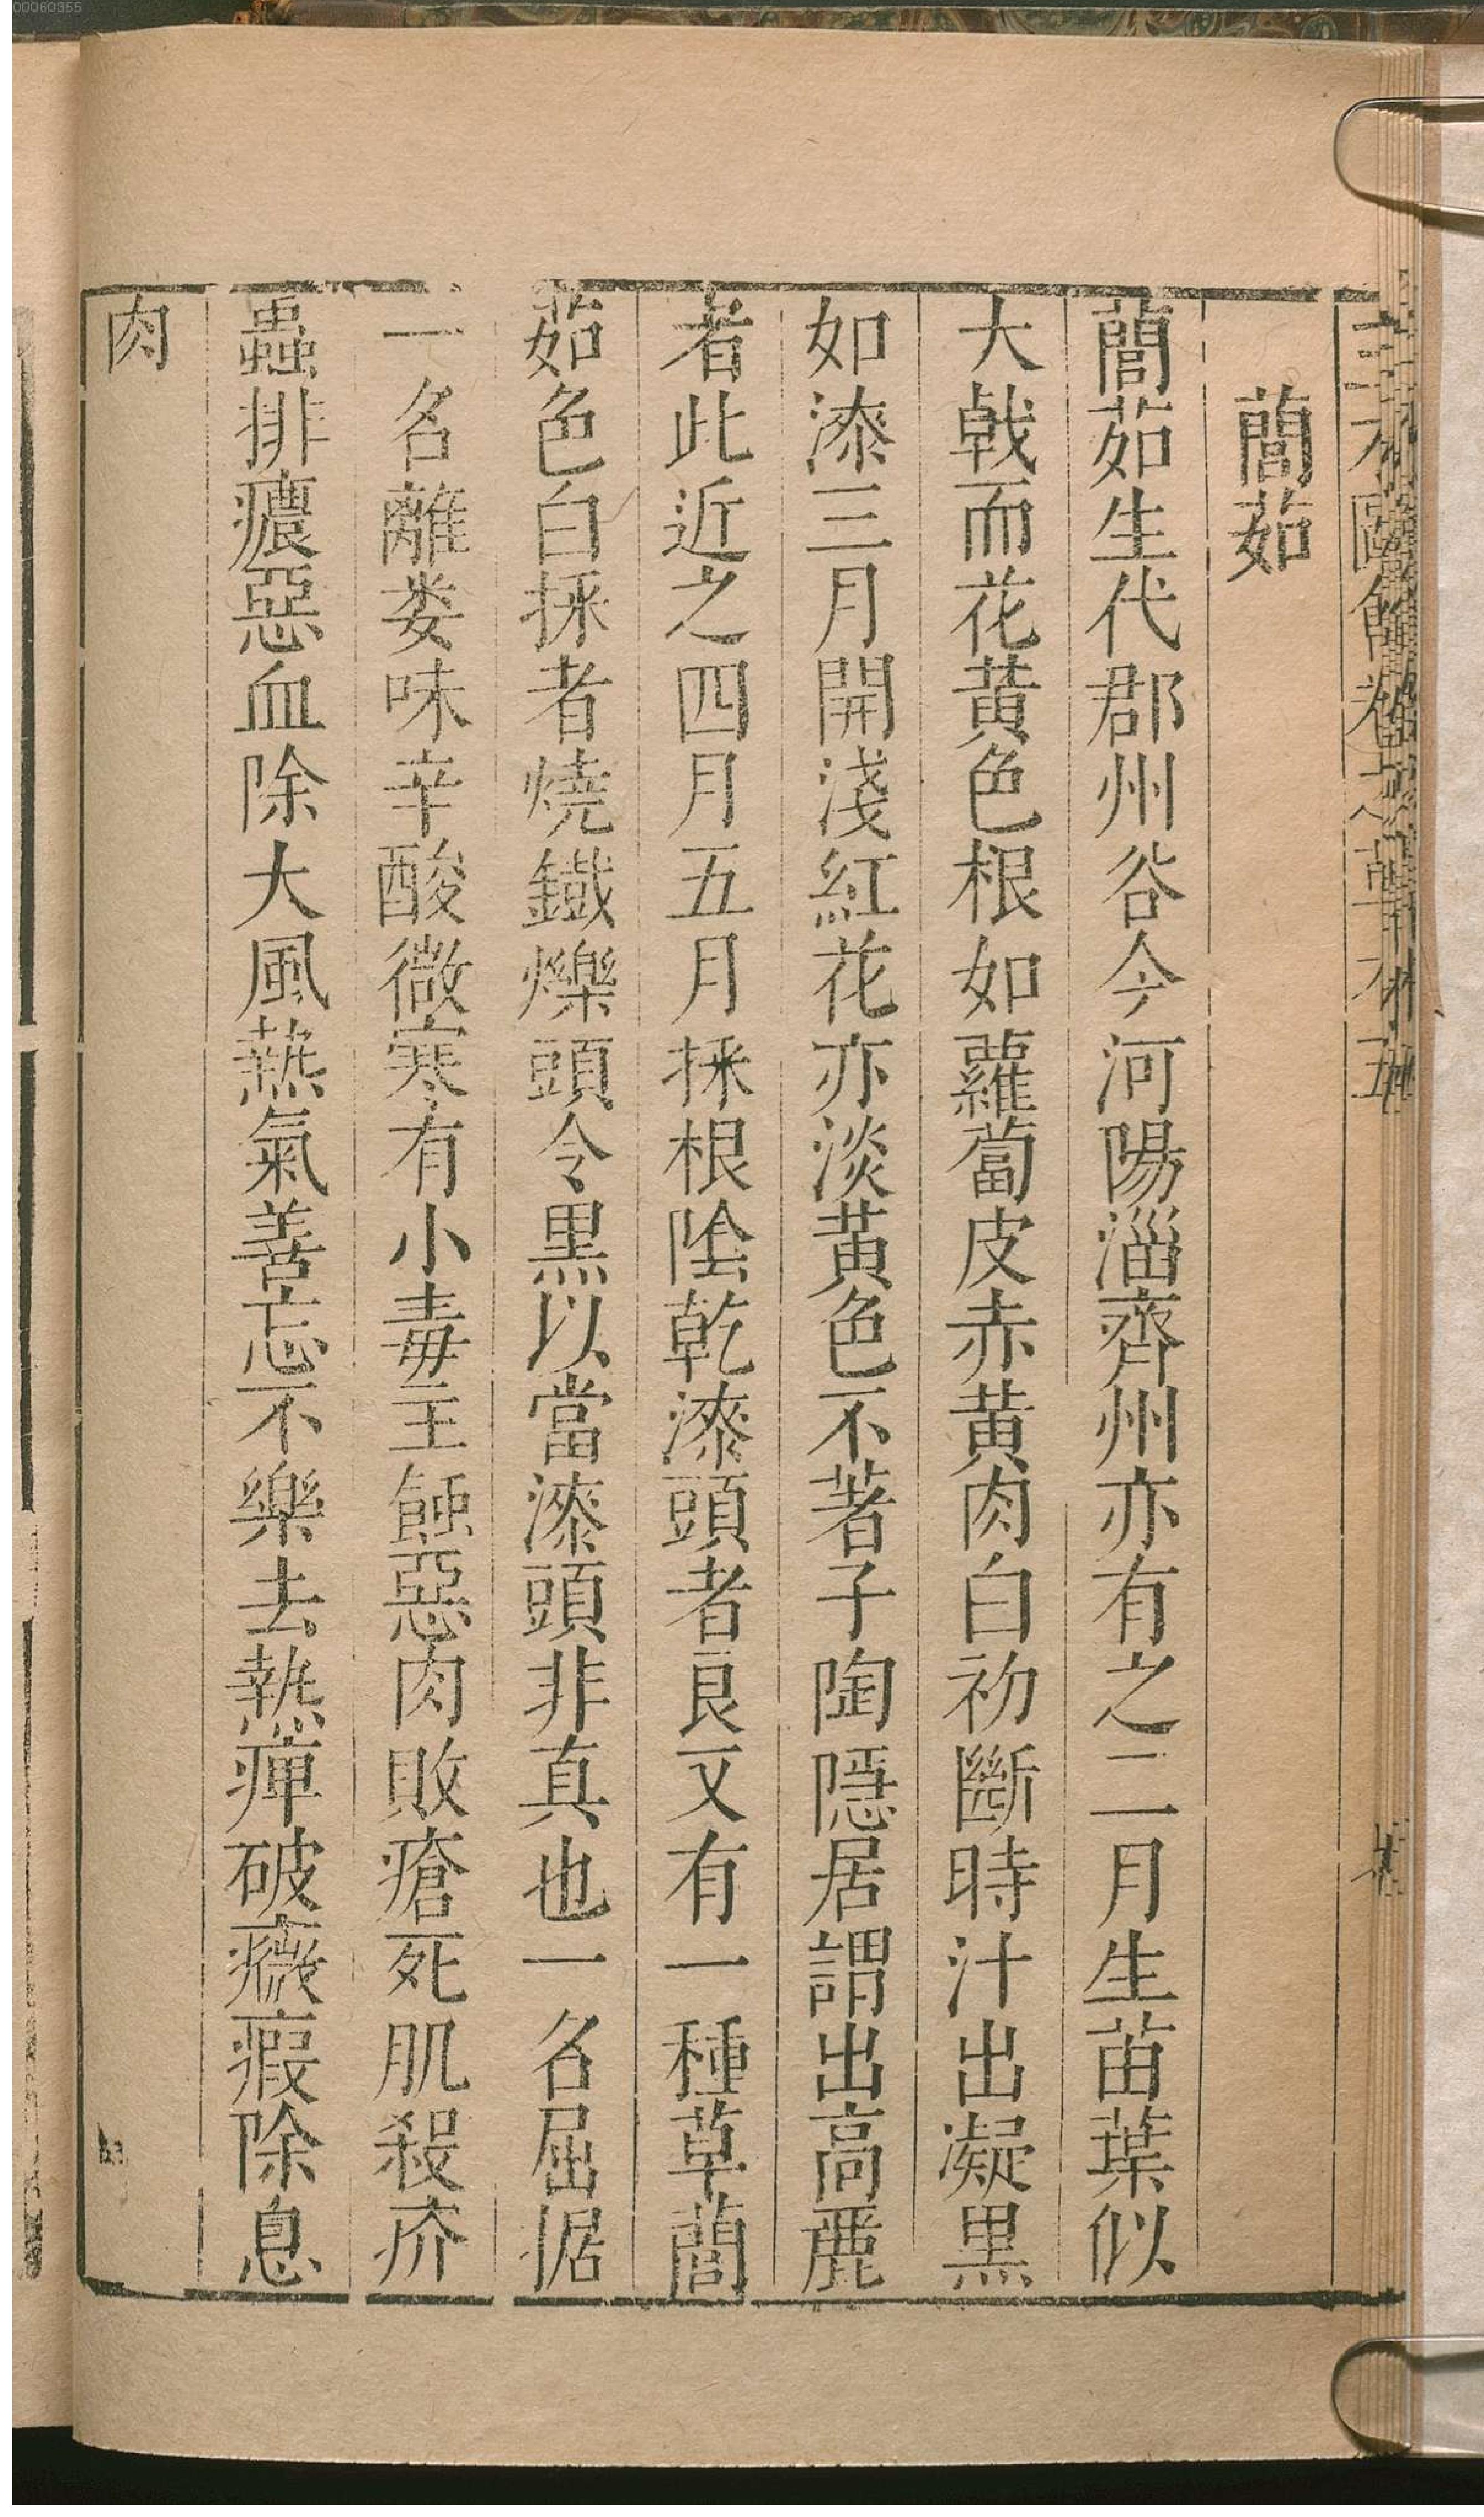 蕳茹
蕳茹生代郡州谷今河陽淄齊州亦有之二月生苗葉似
大戟而花黃色根如蘿蔔皮赤黃肉白初斷時汁出凝黑
如漆三月開淺紅花亦淡黃色不著子陶隱居謂出高麗
者此近之四月五月採根陰乾漆頭者良又有一種草蕳
茹色白採者燒鐵爍頭令黑以當漆頭非真也一名屈据
一名離婁味辛酸微寒有小毒主蝕惡肉敗瘡死肌殺疥
蟲排癑惡血除大風熱氣善忘不樂去熱痺破癥瘕除息
肉
00060355